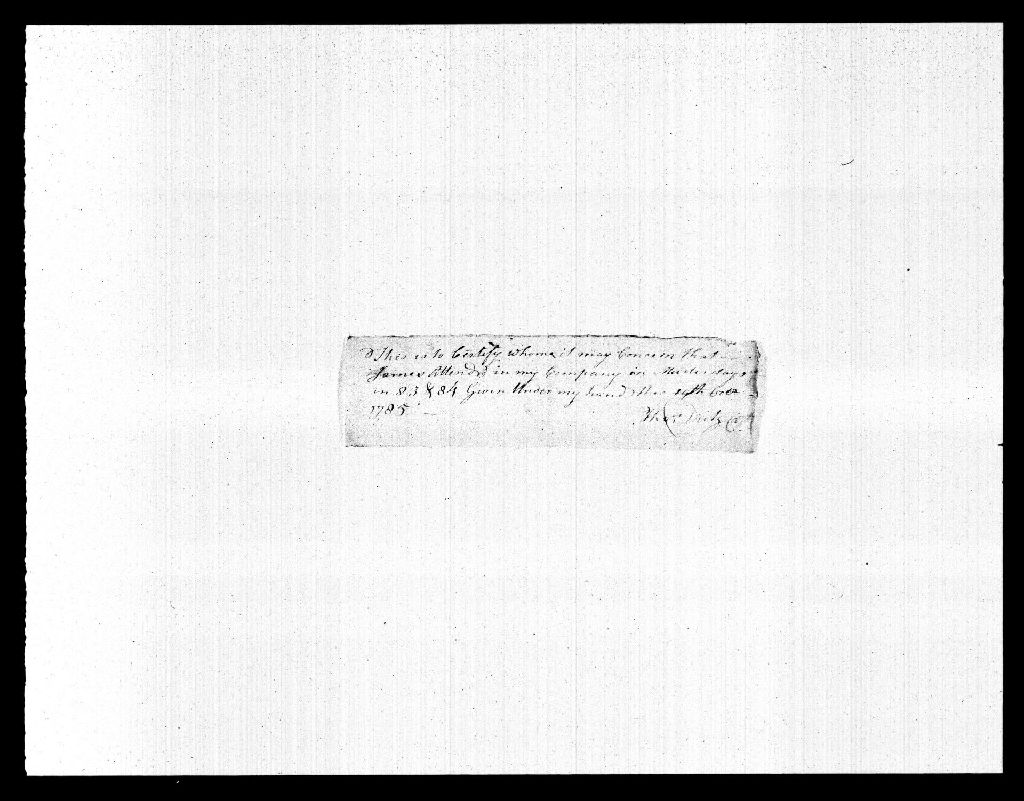 This is to Certify whome it may Concern that
James Attended in my Company in Muster days
in 83 & 84 Given Under my hand this 14th
1785
Thos